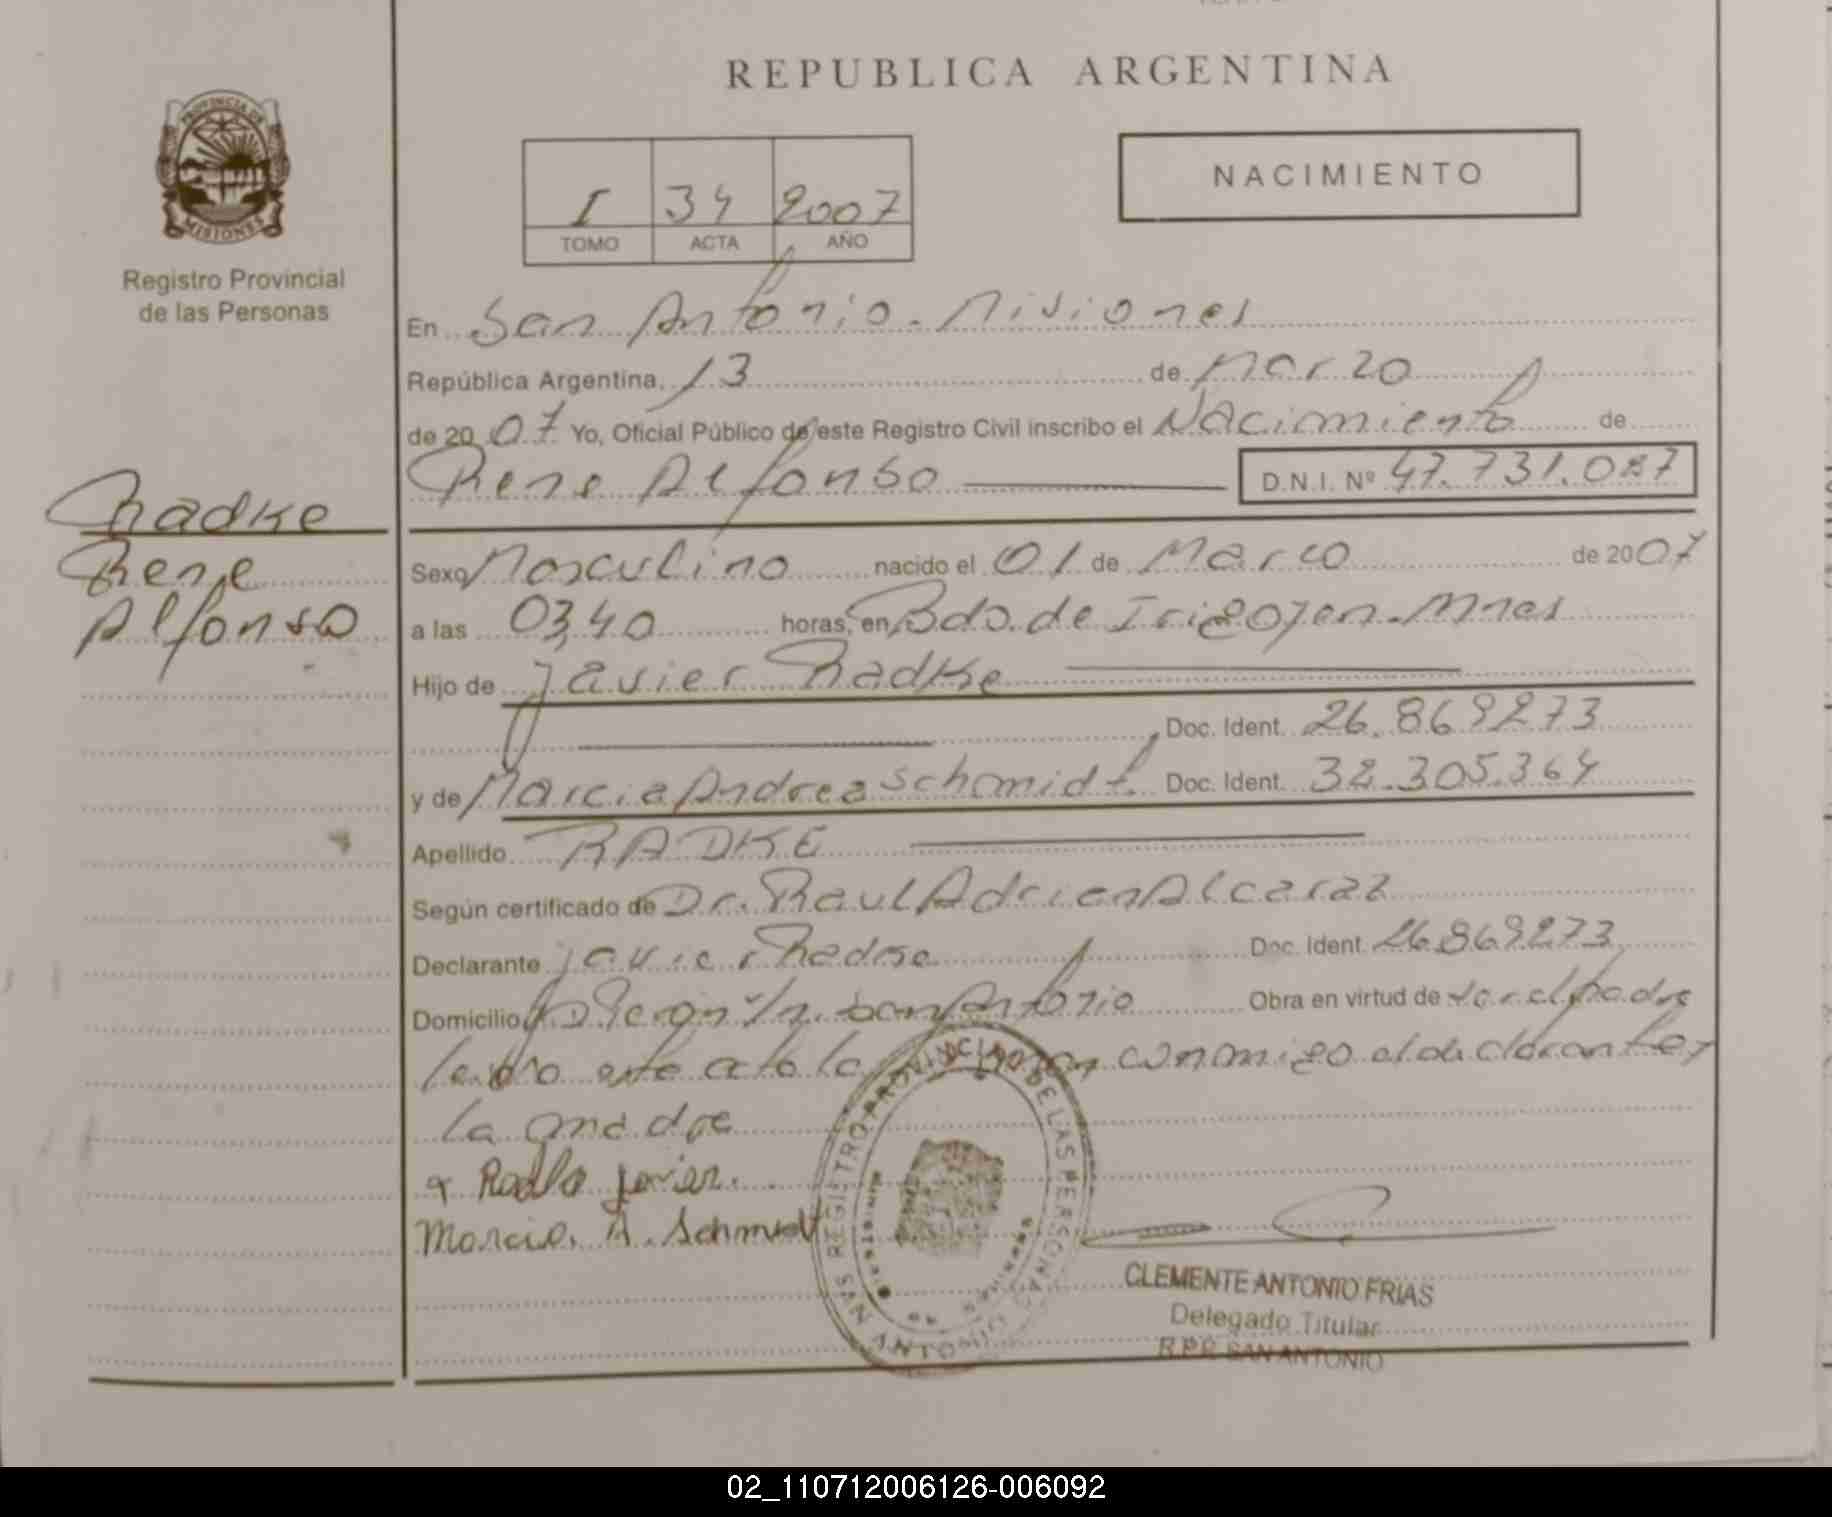 REPUBLICA ARGENTINA
PROVINCIA DE
MISIONES
Registro Provincial
de las Personas
I 34 2007
TOMO ACTA AÑO
NACIMIENTO
En San Antonio - Misiones
República Argentina, 13 de Marzo
de 2007 Yo, Oficial Público de este Registro Civil inscribo el Nacimiento de
Rene Alfonso D.N.I. Nº 47.731.087
Radke
Rene
Alfonso
Sexo Masculino nacido el 01 de Marzo de 2007
a las 03,40 horas, en Bdo. de Irigoyen - Mnes
Hijo de Javier Radke
Doc. Ident. 26.869273
y de Marcia Andrea Schmidt. Doc. Ident. 32.305.364
Apellido RADKE
Según certificado de Dr. Raul Adrien Alcaraz
Declarante Javier Radke Doc. Ident. 26869273
Domicilio San Antonio Obra en virtud de ser el padre
este acto la conmigo el declarante y
la madre
Radke Javier.
Marcia. A. Schmidt
REGISTRO PROVINCIAL DE LAS PERSONAS
SAN ANTONIO
CLEMENTE ANTONIO FRIAS
Delegado Titular
R.P.P. SAN ANTONIO
02_110712006126-006092